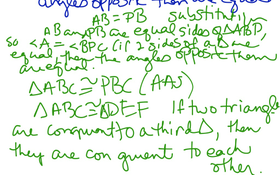 angles opposite them are equal
AB = PB substituti
AB and PB are equal sides of △ABP,
so <A = <BPC (if 2 sides of a △ are
equal, then the angles opposite them
are equal.
△ABC ≅ PBC (AAS)
△ABC ≅ △DEF If two triangle
are congruent to a third △, then
they are congruent to each
other.